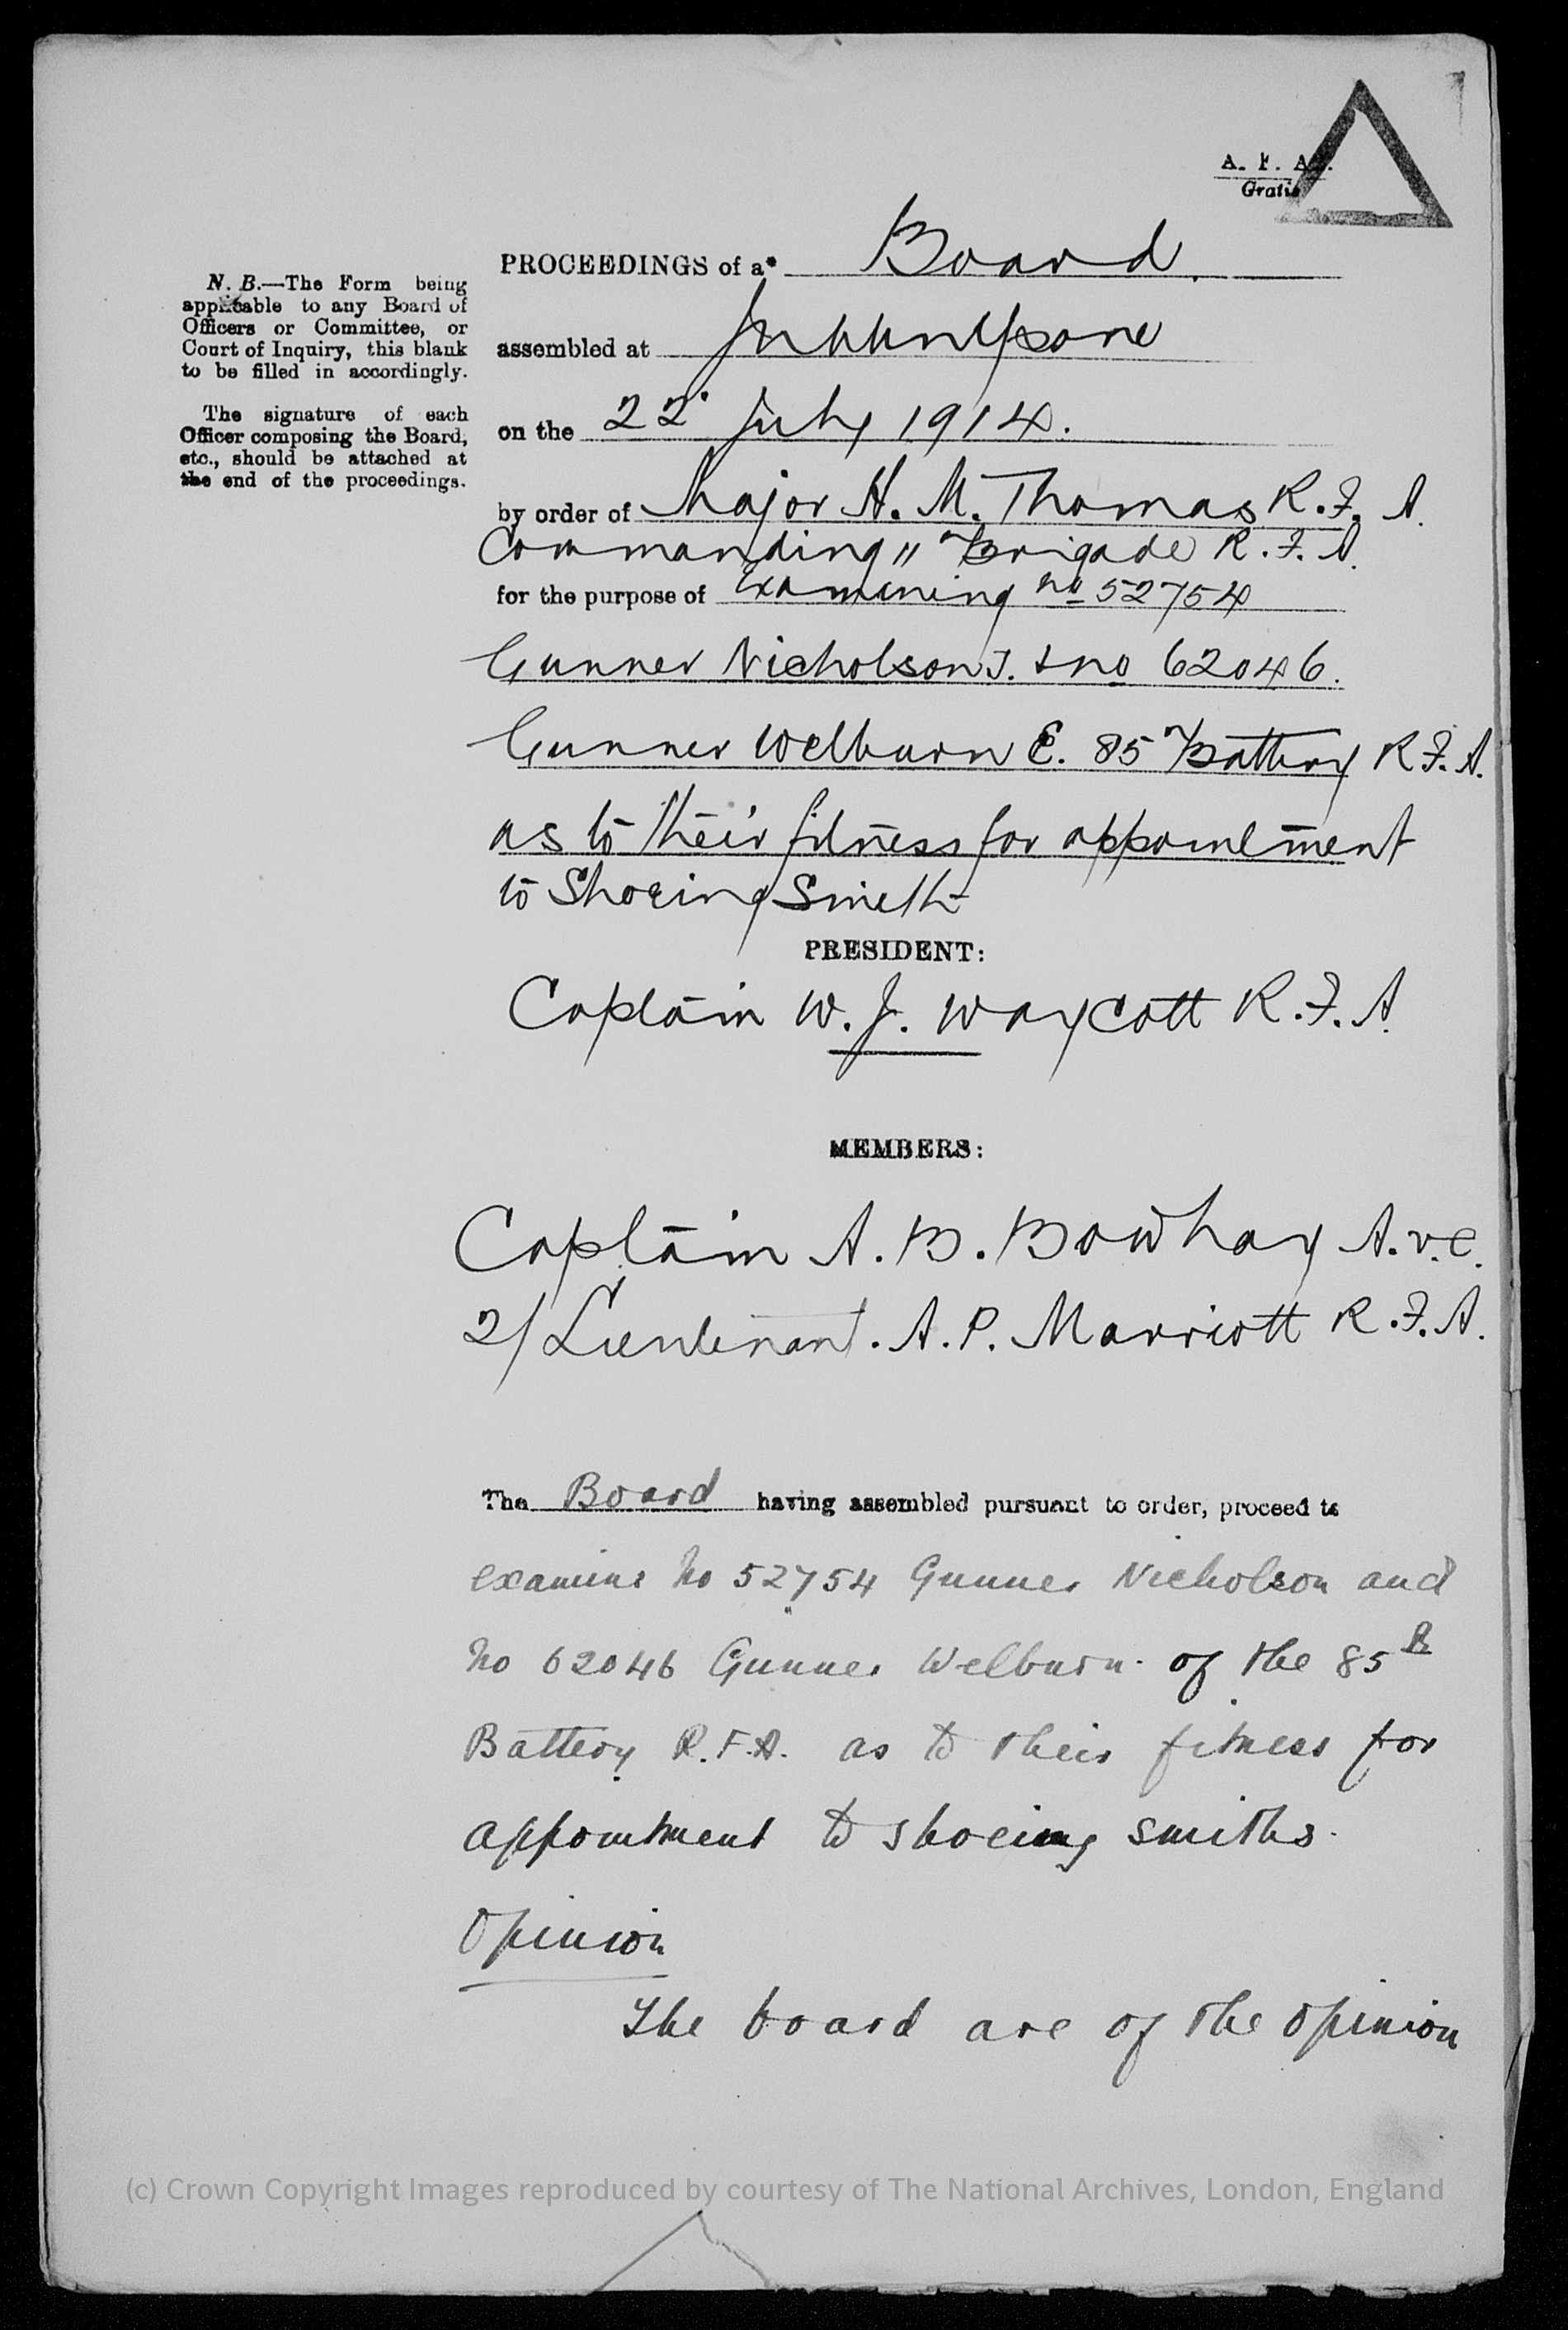 A. F. A.
Gratis
PROCEEDINGS of a* Board.
N. B.—The Form being
applicable to any Board of
Officers or Committee, or
Court of Inquiry, this blank
to be filled in accordingly.
The signature of each
Officer composing the Board,
etc., should be attached at
the end of the proceedings.
assembled at Jubbulpore
on the 22 July 1914.
by order of Major H. M. Thomas R.F.A.
Commanding 11th Brigade R.F.A.
for the purpose of Examining No 52754
Gunner Nicholson J. & no 62046.
Gunner Welburn E. 85th Battery R.F.A.
as to their fitness for appointment
to Shoeing Smith
PRESIDENT:
Captain W. J. Waycott R.F.A.
MEMBERS:
Captain A. B. Bowhay A.V.C.
2/Lieutenant. A. P. Marriott R.F.A.
The Board having assembled pursuant to order, proceed to
examine No 52754 Gunner Nicholson and
No 62046 Gunner Welburn. of the 85th
Battery R.F.A. as to their fitness for
appointment to shoeing smiths.
Opinion
The board are of the opinion
(c) Crown Copyright Images reproduced by courtesy of The National Archives, London, England